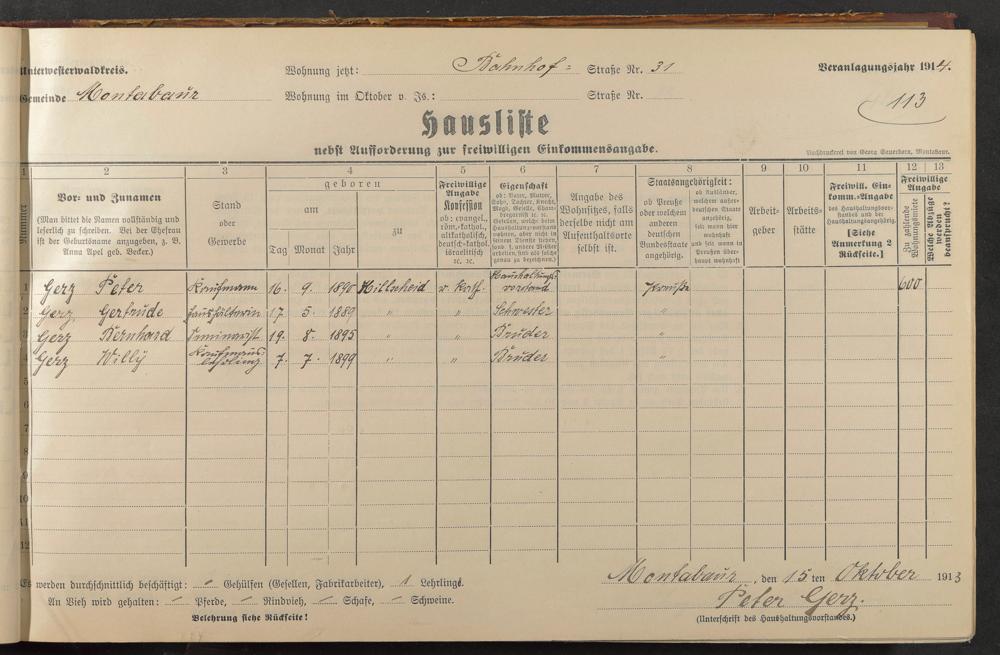 Unterwesterwaldkreis.
Wohnung jetzt: Bahnhof- Straße Nr. 31
Veranlagungsjahr 1914.
Gemeinde Montabaur
Wohnung im Oktober v. Js.: Straße Nr.
113
Hausliste
nebst Aufforderung zur freiwilligen Einkommensangabe.
Buchdruckerei von Georg Sauerborn, Montabaur.
1 2 3 4 5 6 7 8 9 10 11 12 13
Nummer
Vor- und Zunamen
(Man bittet die Namen vollständig und
leserlich zu schreiben. Bei der Ehefrau
ist der Geburtsname anzugeben, z. B.
Anna Apel geb. Becker.)
Stand
oder
Gewerbe
geboren
am
Tag Monat Jahr
zu
Freiwillige
Angabe
Konfession
ob: evangel.,
röm.-kathol.,
altkatholisch,
deutsch-kathol.
israelitisch
ꝛc. ꝛc.
Eigenschaft
ob: Vater, Mutter,
Sohn, Tochter, Knecht,
Magd, Geselle,
Angabe des
Wohnsitzes, falls
derselbe nicht am
Aufenthaltsorte
selbst ist.
Staatsangehörigkeit:
ob Preuße
oder welchem
anderen
deutschen
Bundesstaate
angehörig.
ob Ausländer,
welchem außer-
deutschen Staate
angehörig,
seit wann hier
wohnhaft
und seit wann in
Preußen über-
haupt wohnhaft
Arbeit-
geber
Arbeits-
stätte
Freiwill. Ein-
komm.-Angabe
des Haushaltungsvor-
standes und der
Haushaltungsangehörig.
[Siehe
Anmerkung 2
Rückseite.]
Freiwillige
Angabe
Zu zahlende
Wohnungsmiete
Welche Abzüge
werden
beansprucht?
1 Gerz Peter Kaufmann 16. 9. 1890 Hillscheid r. Kath. Haushaltungs-
vorstand Preuße 600
2 Gerz Gertrude Haushälterin 17 5. 1889 " " Schwester "
3 Gerz Bernhard Seminarist 19. 8. 1895 " " Bruder "
4 Gerz Willy Kaufmanns-
lehrling 7. 7. 1899 " " Bruder "
5
6
7
8
9
10
11
12
Es werden durchschnittlich beschäftigt: - Gehülfen (Gesellen, Fabrikarbeiter), 1 Lehrlinge.
An Vieh wird gehalten: - Pferde, - Rindvieh, - Schafe, - Schweine.
Belehrung siehe Rückseite!
Montabaur, den 15 ten Oktober 1913
Peter Gerz.
(Unterschrift des Haushaltungsvorstandes.)